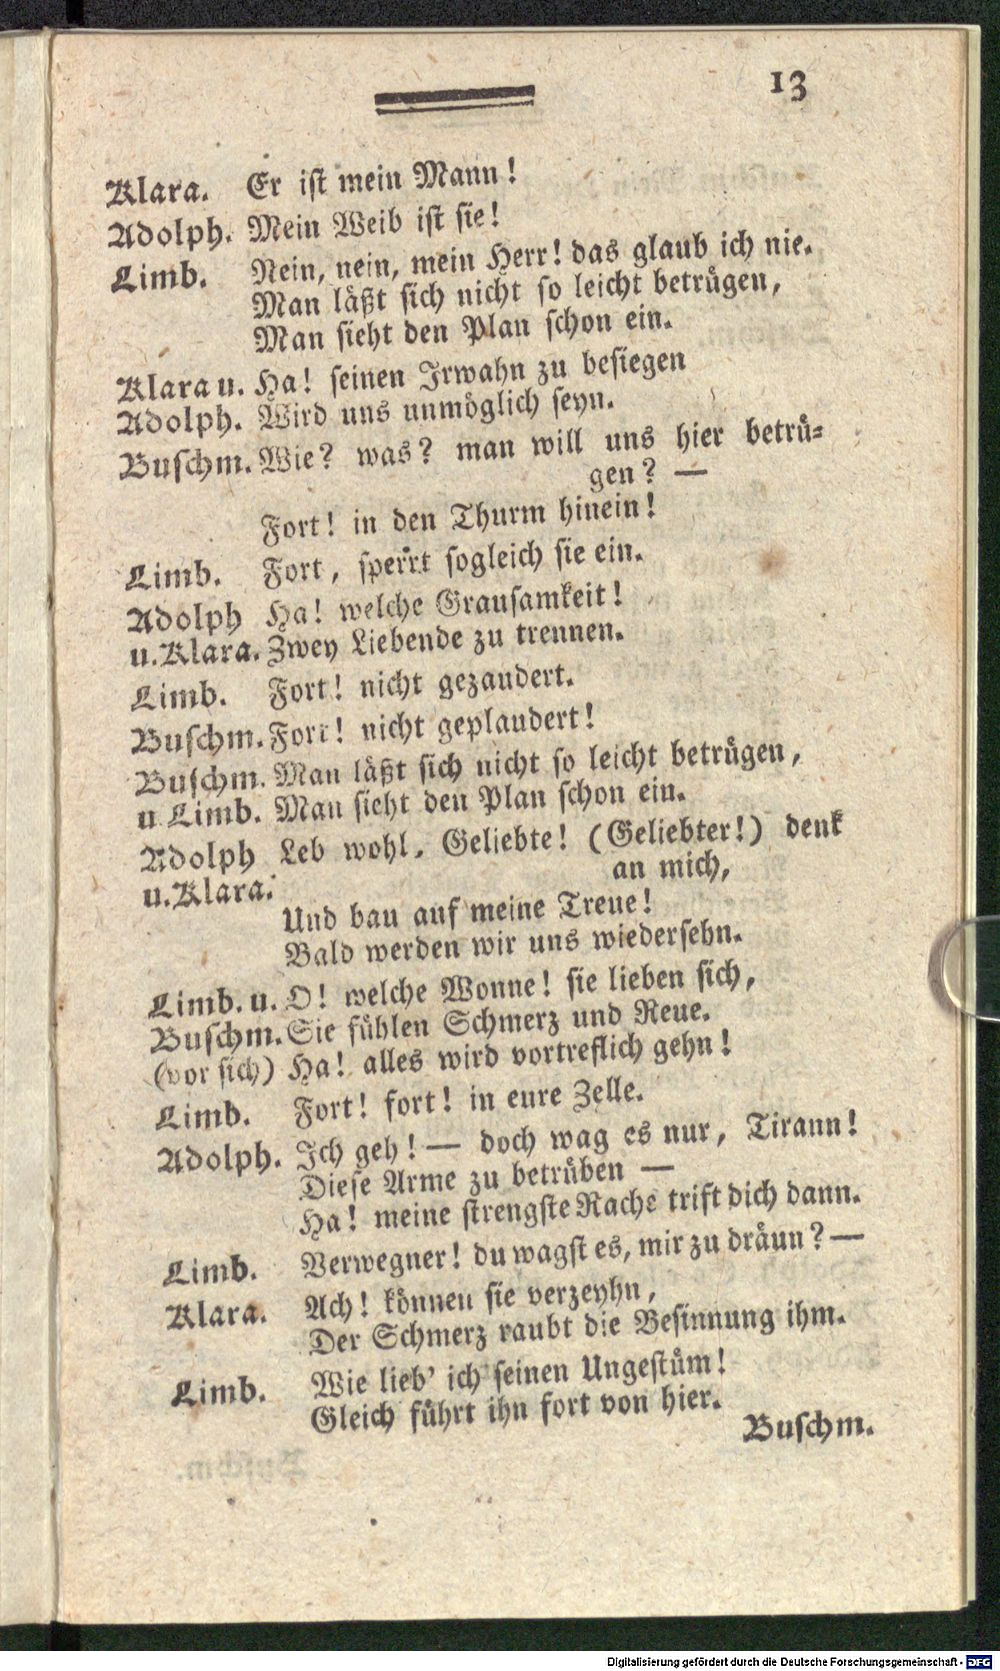 13
Klara. Er ist mein Mann!
Adolph. Mein Weib ist sie!
Limb. Nein, nein, mein Herr! das glaub ich nie.
Man läßt sich nicht so leicht betrügen,
Man sieht den Plan schon ein.
Klara u. Ha! seinen Irwahn zu besiegen
Adolph. Wird uns unmöglich seyn.
Buschm. Wie? was? man will uns hier betrü-
gen? —
Fort! in den Thurm hinein!
Limb. Fort, sperrt sogleich sie ein.
Adolph Ha! welche Grausamkeit!
u. Klara. Zwey Liebende zu trennen.
Limb. Fort! nicht gezaudert.
Buschm. Fort! nicht geplaudert!
Buschm. Man läßt sich nicht so leicht betrügen,
u Limb. Man sieht den Plan schon ein.
Adolph Leb wohl, Geliebte! (Geliebter!) denk
u. Klara. an mich,
Und bau auf meine Treue!
Bald werden wir uns wiedersehn.
Limb. u. O! welche Wonne! sie lieben sich,
Buschm. Sie fühlen Schmerz und Reue.
(vor sich) Ha! alles wird vortreflich gehn!
Limb. Fort! fort! in eure Zelle.
Adolph. Ich geh! — doch wag es nur, Tirann!
Diese Arme zu betrüben —
Ha! meine strengste Rache trift dich dann.
Limb. Verwegner! du wagst es, mir zu dräun? —
Klara. Ach! können sie verzeyhn,
Der Schmerz raubt die Besinnung ihm.
Limb. Wie lieb' ich seinen Ungestüm!
Gleich führt ihn fort von hier.
Buschm.
Digitalisierung gefördert durch die Deutsche Forschungsgemeinschaft - DFG